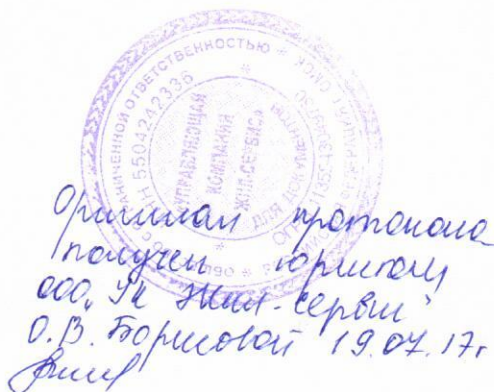 ОГРАНИЧЕННОЙ ОТВЕТСТВЕННОСТЬЮ
ИНН 5504242336
УПРАВЛЯЮЩАЯ
КОМПАНИЯ
ЖИЛ-СЕРВИС
ДЛЯ ДОКУМЕНТОВ
Оригинал протокола
получен юристом
ООО "УК Жил-сервис"
О.В. Борисовой 19.07.17г